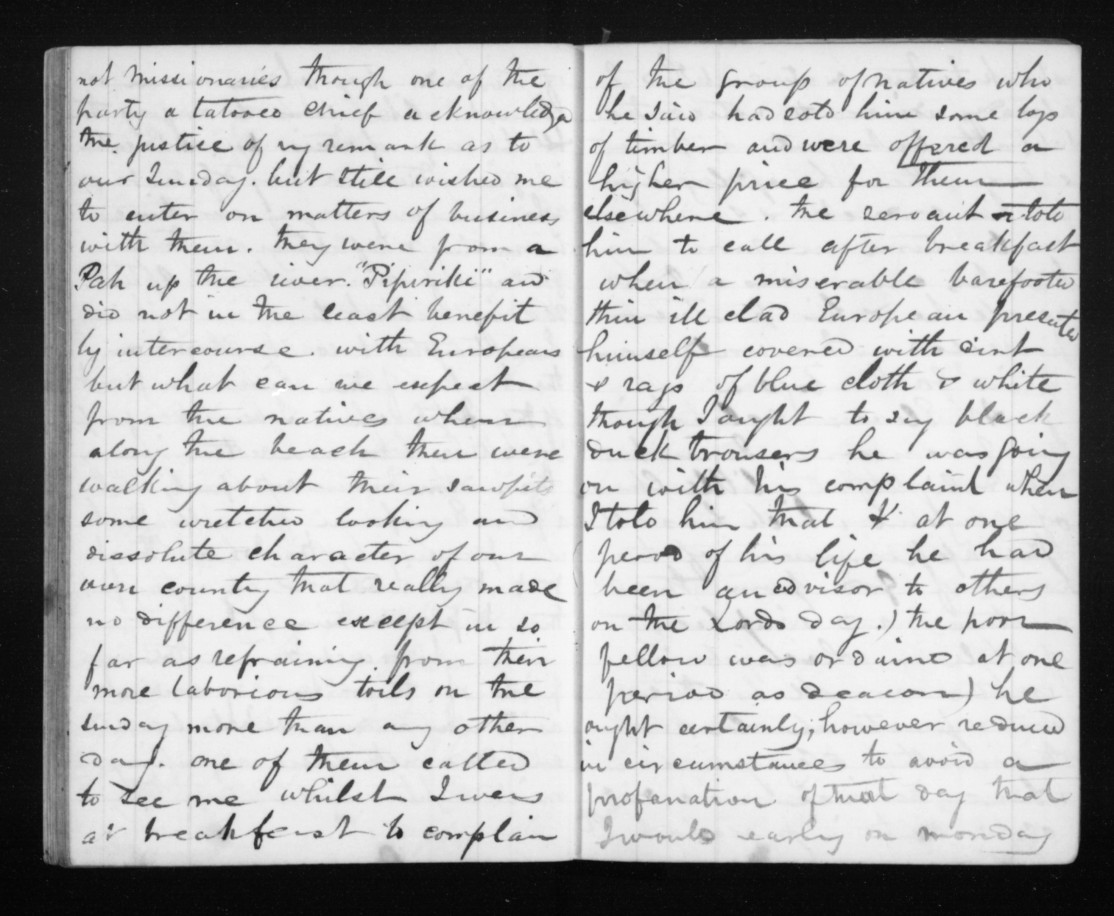 not missionaries though one of the
party a tatooed chief acknowledge
the justice of my remark as to
our Sunday. but still wished me
to enter on matters of business
with them. they were from a
Pah up the river. "Pipiriki" and
did not in the least benefit
by intercourse with Europeans
but what can we expect
from the natives when
along the beach there were
walking about their sawpits
some wretched looking and
dissolute character of our
own country that really made
no difference except in so
far as refraining from their
more laborious toils on the
Sunday more than any other
day. one of them called
to see me whilst I was
at breakfast to complain
of the group of natives who
he said had sold him some logs
of timber and were offered a
higher price for them
elsewhere. the servant told
him to call after breakfast
when a miserable barefooted
thin ill clad European presented
himself covered with dirt
& rags of blue cloth & white
though I ought to say black
duck trousers he was going
on with his complaint when
I told him that at one
period of his life he had
been an advisor to others
on the Lords day.) the poor
fellow was ordained at one
period as deacon) he
ought certainly, however reduced
in circumstances to avoid a
profanation of that day that
I would early on monday